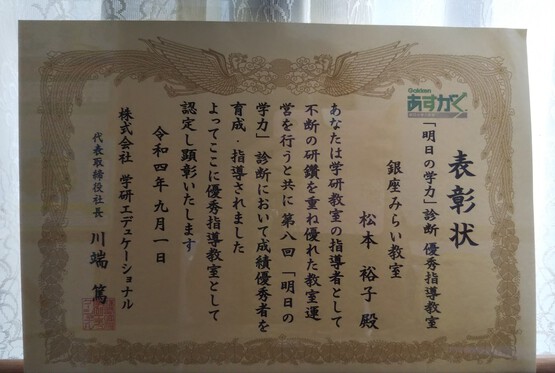 表彰状
Gakken
あすがく
「明日の学力」診断 優秀指導教室
銀座みらい教室
松本 裕子 殿
あなたは学研教室の指導者として
不断の研鑽を重ね優れた教室運
営を行うと共に 第八回 「明日の
学力」 診断において成績優秀者を
育成・指導されました
よってここに優秀指導教室として
認定し顕彰いたします
令和四年 九月一日
株式会社 学研エデュケーショナル
代表取締役社長 川端 篤